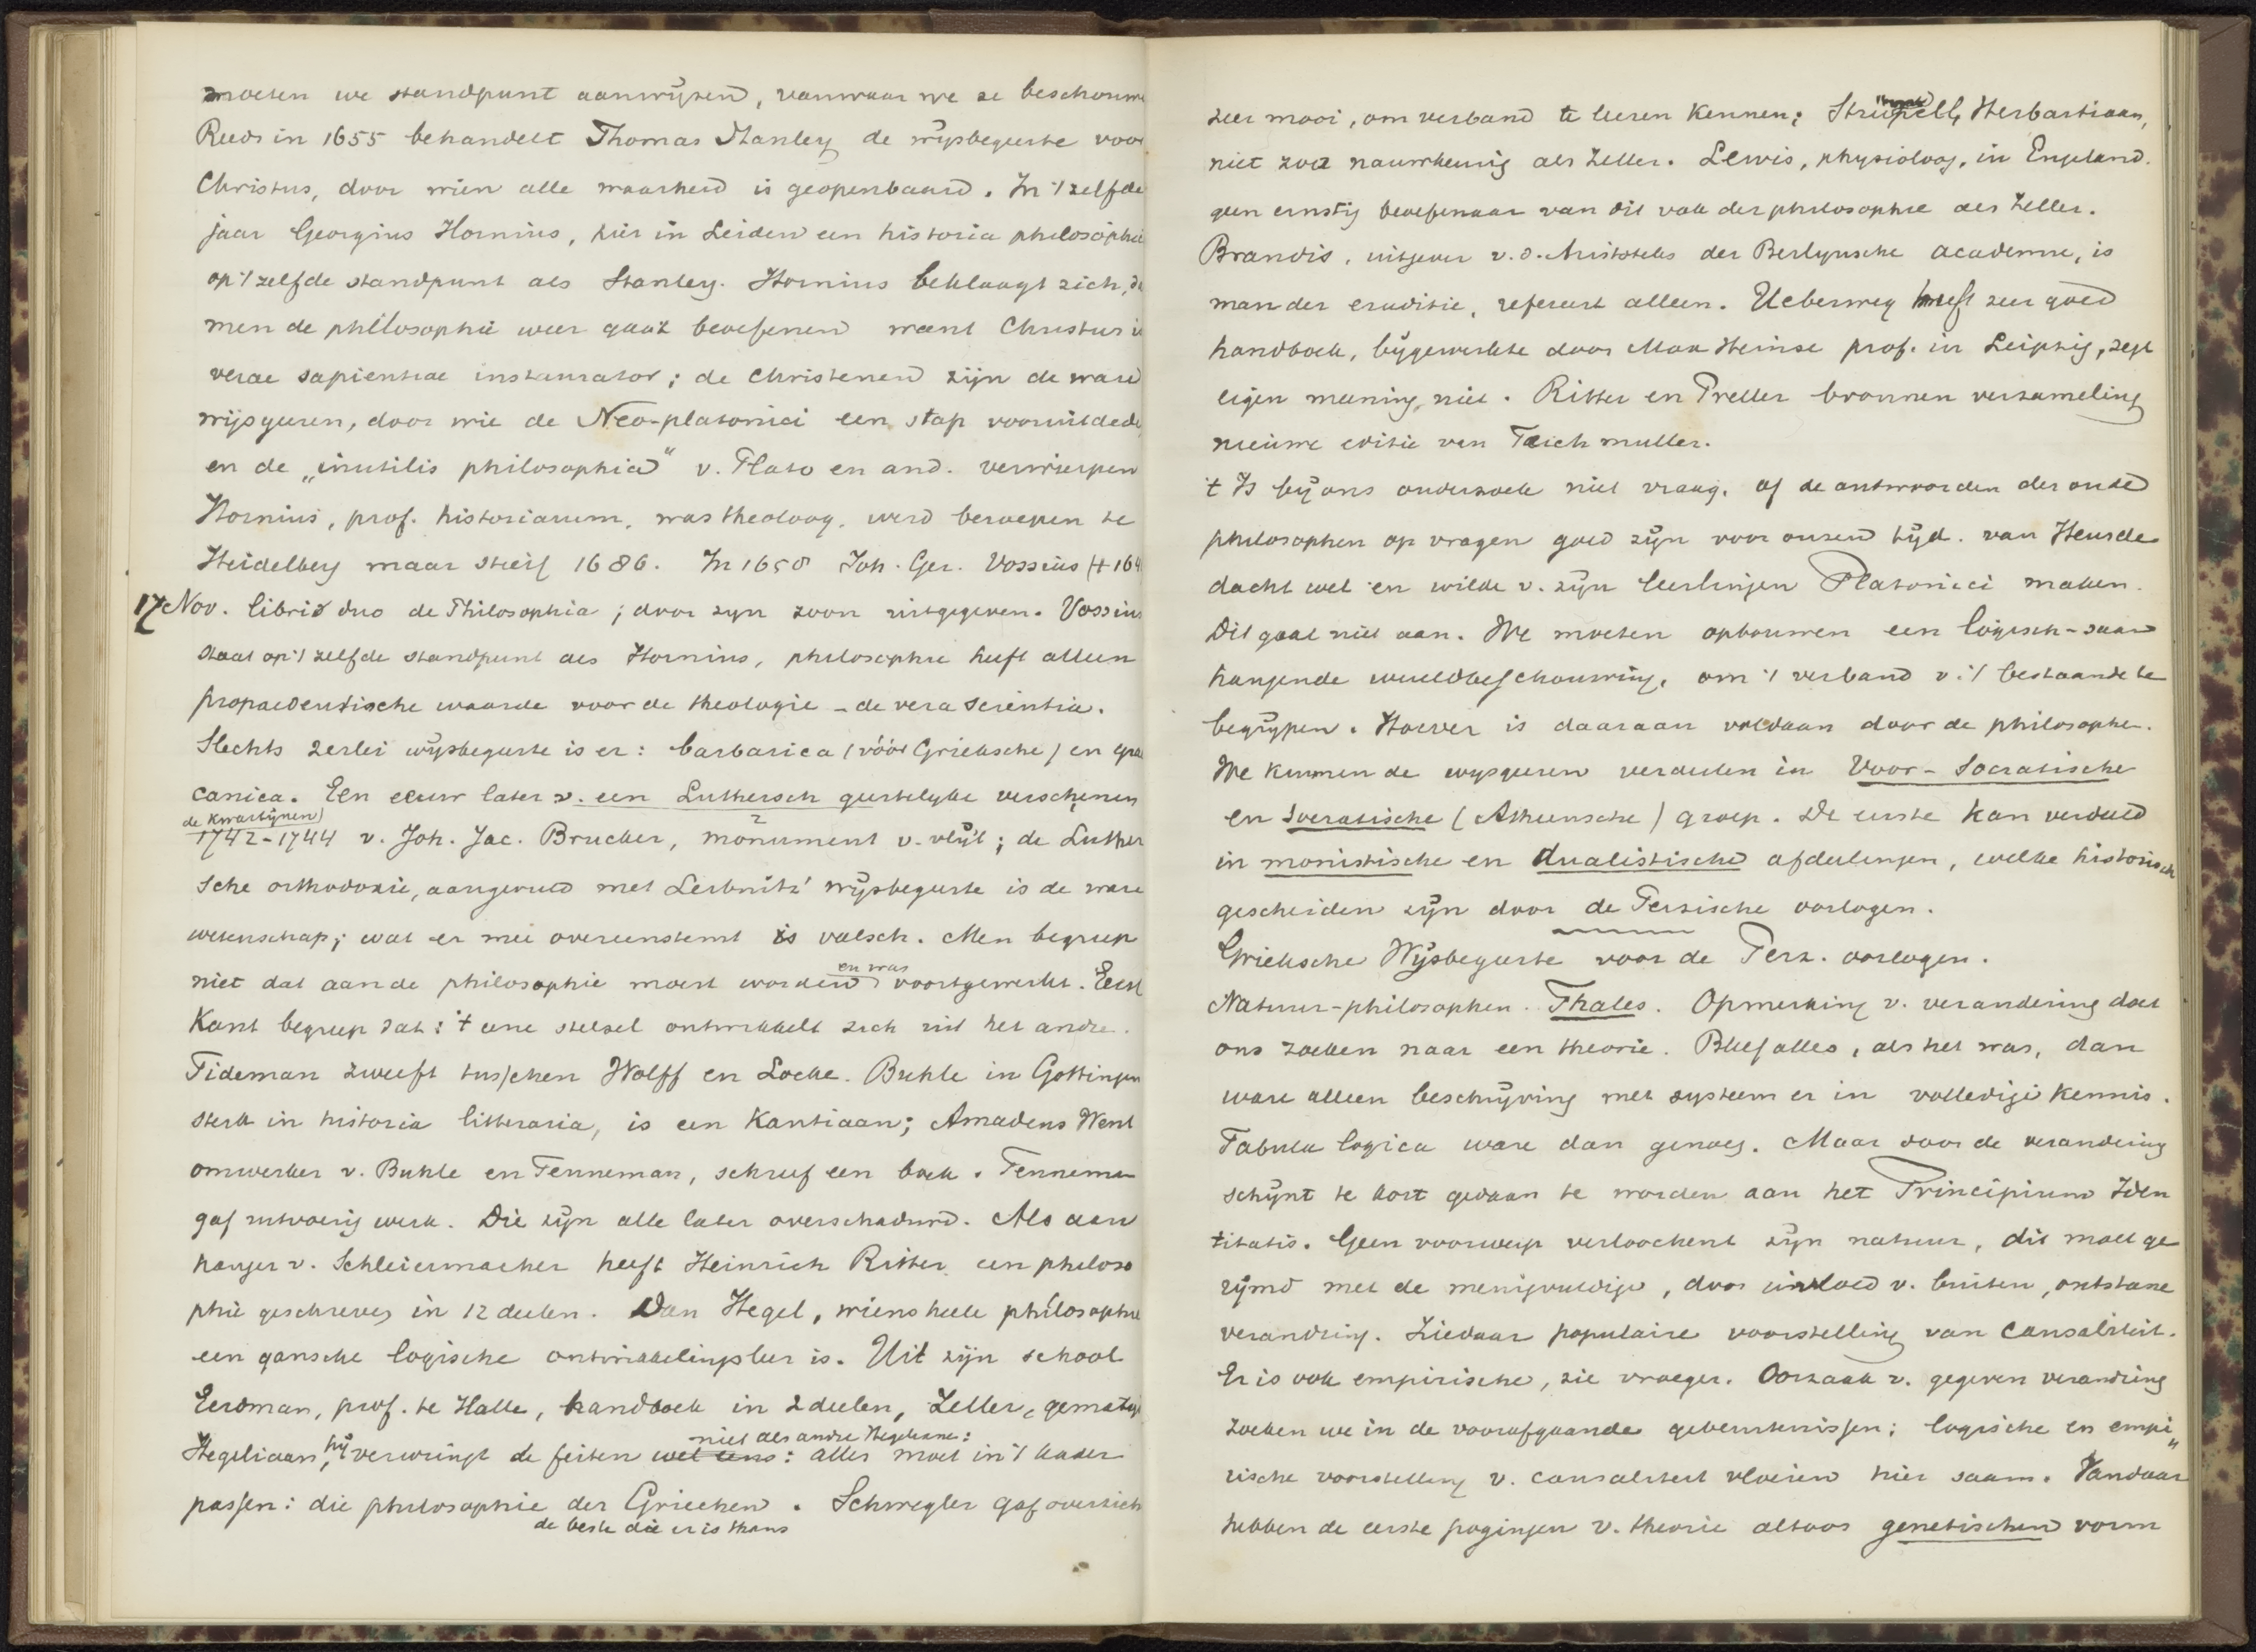 moeten we standpunt aanwijzen, vanwaar we ze beschouwe
Reeds in 1655 behandelt Thomas Stanley de wijsbegeerte voor
Christus, door wien alle waarheid is geopenbaard. In 't zelfde
jaar Georgius Hornius, hier in Leiden een historia philosophie
op 't zelfde standpunt als Stanley. Hornius beklaagt zich, da
men de philosophie weer gaat beoefenen want Christus is
verae sapientiae instaurator; de Christenen zijn de ware
wijsgeeren, door wie de Neo-platonici een stap vooruitdede
en de „inutilis philosophia" v. Plato en and. verwierpen
Hornius, prof. historiarum, was theoloog, werd beroepen te
Heidelberg maar stierf 1686. In 1658 Joh. Ger. Vossius (+ 164
17 Nov. libris duo de Philosophia; door zyn zoon uitgegeven. Vossius
staat op 't zelfde standpunt als Hornius, philosophie heeft alleen
propaedeutische waarde voor de theologie - de vera scientia.
Slechts 2erlei wijsbegeerte is er: barbarica (vóór Grieksche) en grae
canica. Een eeuw later v. een Luthersch geestelyke verschenen
de kwartijnen
1742-1744 v. Joh. Jac. Brucker, monument v. vlijt; de Luther
sche orthodoxie, aangevuld met Leibnitz' wijsbegeerte is de ware
wetenschap; wat er mee overeenstemt is valsch. Men begreep
en was
niet dat aan de philosophie moest worden voortgewerkt. Eerst
Kant begreep dat: 't eene stelsel ontwikkelt zich uit het andre.
Tideman zweeft tusschen Wolff en Locke. Buhle in Gottingen
sterk in historia litteraria, is een Kantiaan; Amadeus Went
omwerker v. Buhle en Tenneman, schreef een boek. Tenneman
gaf uitvoerig werk. Die zijn alle later overschaduwd. Als aan
hanger v. Schleiermacher heeft Heinrich Ritter een philoso
phie geschreven in 12 deelen. Dan Hegel, wiens heele philosophie
een gansche logische ontwikkelingsleer is. Uit zijn school
Erdman, prof. te Halle, handboek in 2 deelen, Zeller, gematigd
niet als andre Hegeliane:
Hegeliaan, hij verwringt de feiten wel eens: alles moet in 't kader
passen: die philosophie der Griechen. Schwegler gaf overzich
de beste die er is thans
zeer mooi, om verband te leeren kennen; Strümpell, Herbartiaan,
niet zoo nauwkeurig als Zeller. Lewis, physioloog, in Engeland.
geen ernstig beoefenaar van dit vak der philosophie als Zeller.
Brandis, uitgever v. d. Aristoteles der Berlynsche academie, is
man der eruditie, refereert alleen. Ueberweg heeft zeer goed
handboek, bijgewerkte door Max Heinse prof. in Leipzig, zegt
eigen meening niet. Ritter en Preller bronnen verzameling
nieuwe editie van Teichmuller.
't Is bij ons onderzoek niet vraag, of de antwoorden der oude
philosophen op vragen goed zijn voor onzen tijd. van Heusde
dacht wel en wilde v. zijn leerlingen Platonici maken.
Dit gaat niet aan. We moeten opbouwen een logisch-saam
hangende wereldbeschouwing, om 't verband v. 't bestaande te
begrijpen. Hoever is daaraan voldaan door de philosophe.
We kunnen de wysgeeren verdeelen in Voor-Socratische
en Socratische (Atheensche) groep. De eerste kan verdeeld
in monistische en dualistische afdeelingen, welke historisch
gescheiden zijn door de Perzische oorlogen.
Grieksche Wijsbegeerte voor de Perz. oorlogen.
Natuur-philosophen. Thales. Opmerking v. verandering doet
ons zoeken naar een theorie. Bleef alles, als het was, dan
ware alleen beschrijving met systeem er in volledige kennis.
Tabula logica ware dan genoeg. Maar door de verandering
schijnt te kort gedaan te worden aan het Principium Iden
titatis. Geen voorwerp verloochent zijn natuur, dit moet ge
rijmd met de menigvuldige, door invloed v. buiten, ontstane
verandring. Ziedaar populaire voorstelling van Causaliteit.
Er is ook empirische, zie vroeger. Oorzaak v. gegeven verandring
zoeken we in de voorafgaande gebeurtenissen; logische en empi„
rische voorstelling v. causaliteit vloeien hier saam. Vandaar
hebben de eerste pogingen v. theorie altoos genetischen vorm